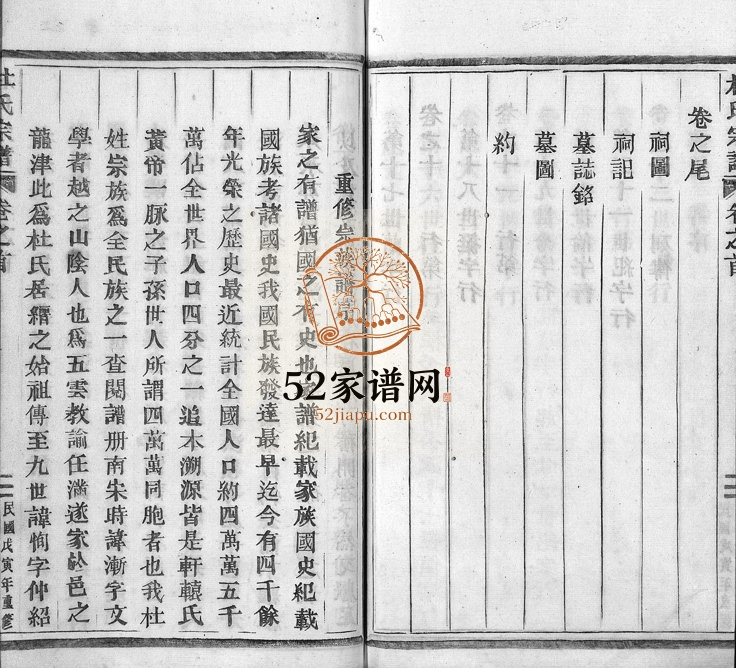 杜氏宗譜
卷之首
卷之尾
祠圖
祠記
墓誌銘
墓圖
約
重修宗族譜序
家之有譜猶國之有史也族譜紀載家族國史紀載
國族考諸國史我國民族發達最早迄今有四千餘
年光榮之歷史最近統計全國人口約四萬萬五千
萬佔全世界人口四分之一追本溯源皆是軒轅氏
黃帝一脉之子孫世人所謂四萬萬同胞者也我杜
姓宗族爲全民族之一查閱譜册南宋時諱漸字文
學者越之山陰人也爲五雲教諭任滿遂家於邑之
龍津此爲杜氏居縉之始祖傳至九世諱恂字仲紹
杜氏宗譜
卷之首
一
民國戊寅年重修
52家谱网
52jiapu.com